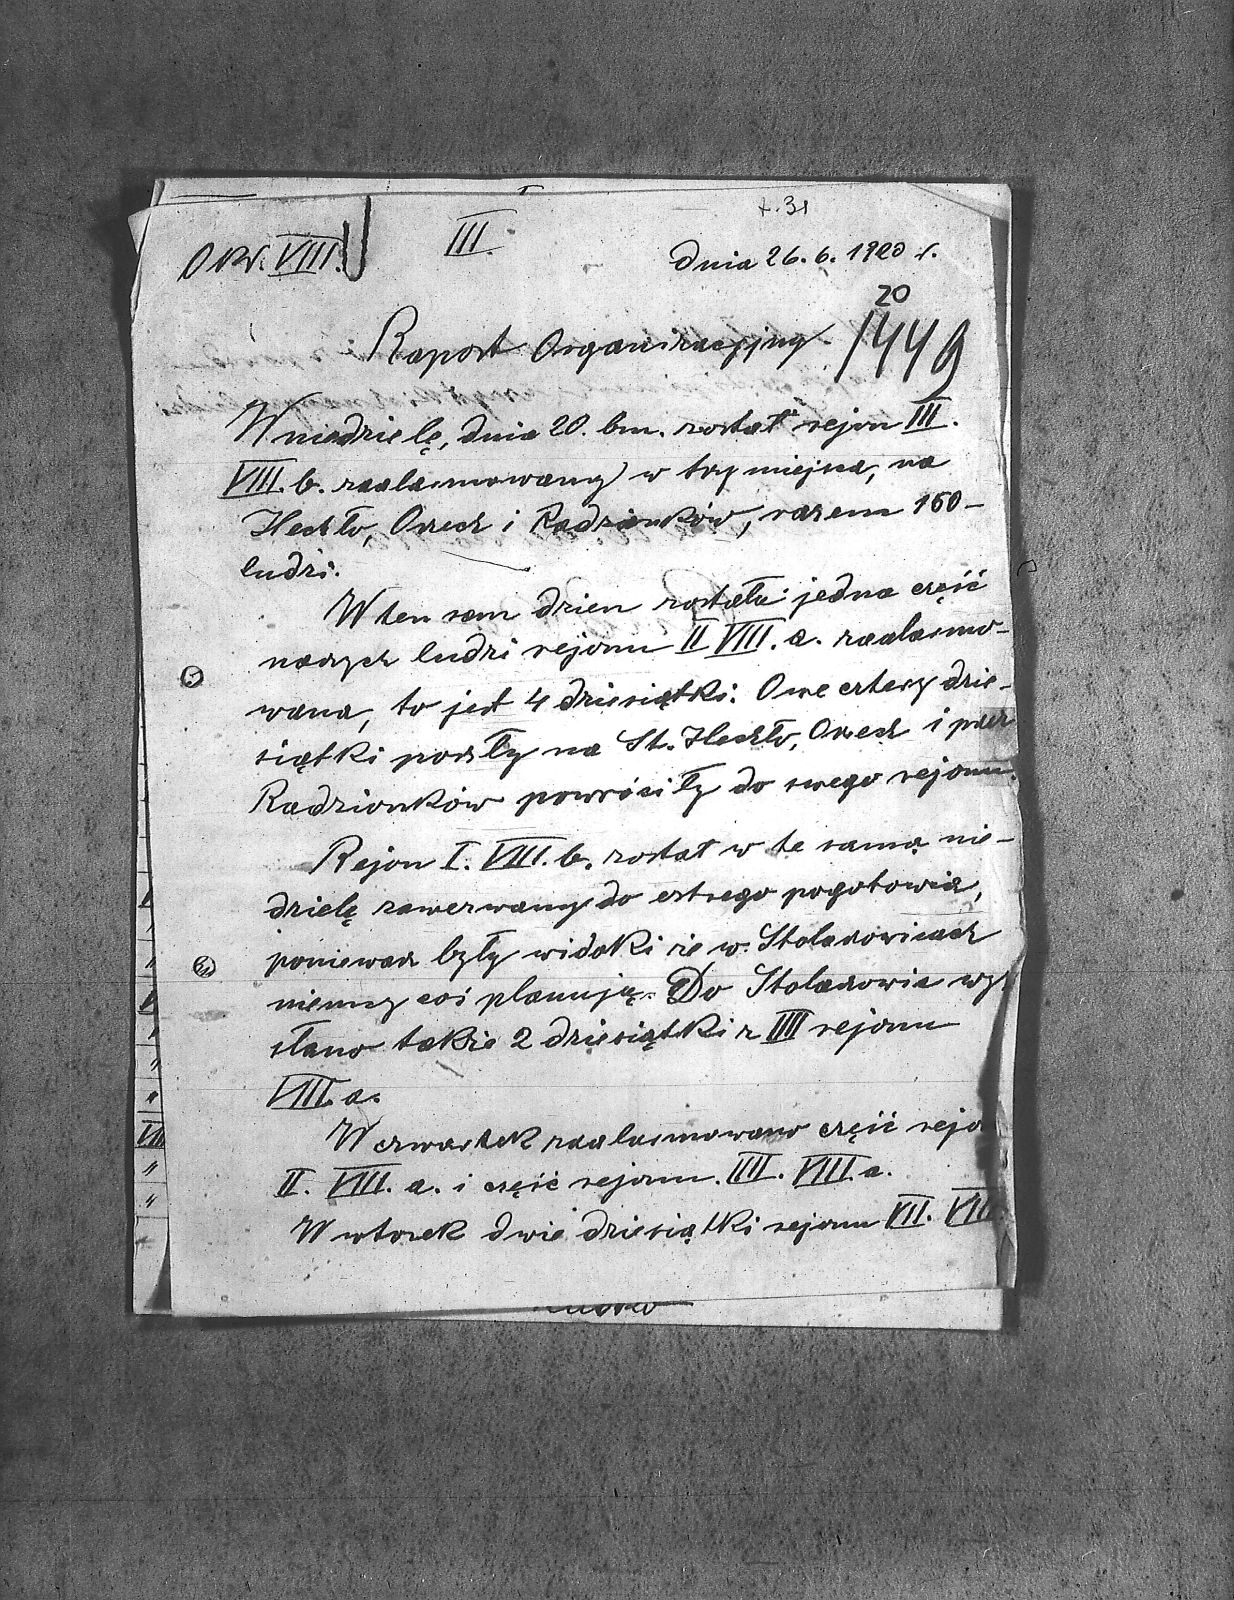 t. 31
Okr. VIII. III. dnia 26. 6. 1920 r.
20
Raport Organizacyjny. 1449
W niedzielę, dnia 20. bm. został rejon III.
VIII. b. zaalarmowany w trzy miejsca, na
Orzech i Radzionków, razem 160 –
ludzi.
W ten sam dzien została jedna część
naszych ludzi rejonu II VIII. a. zaalarmo-
wana, to jest 4 dziesiątki. Owe cztery dzie-
siątki poszły na St. Orzech i przez
Radzionków powróciły do swego rejonu.
Rejon I. VIII. b. został w te samą nie-
dzielę zawezwany do ostrego pogotowia,
ponieważ były widoki że w Stolarzowicach
niemcy coś planują. Do Stolarzowic wy-
słano takže 2 dziesiątki z IIII rejonu
VIII. a.
W czwartek zaalarmowano część rejo
II. VIII. a. i część rejonu. IIII. VIII. a.
W wtorek dwie dziesiątki rejonu VII. VIII.